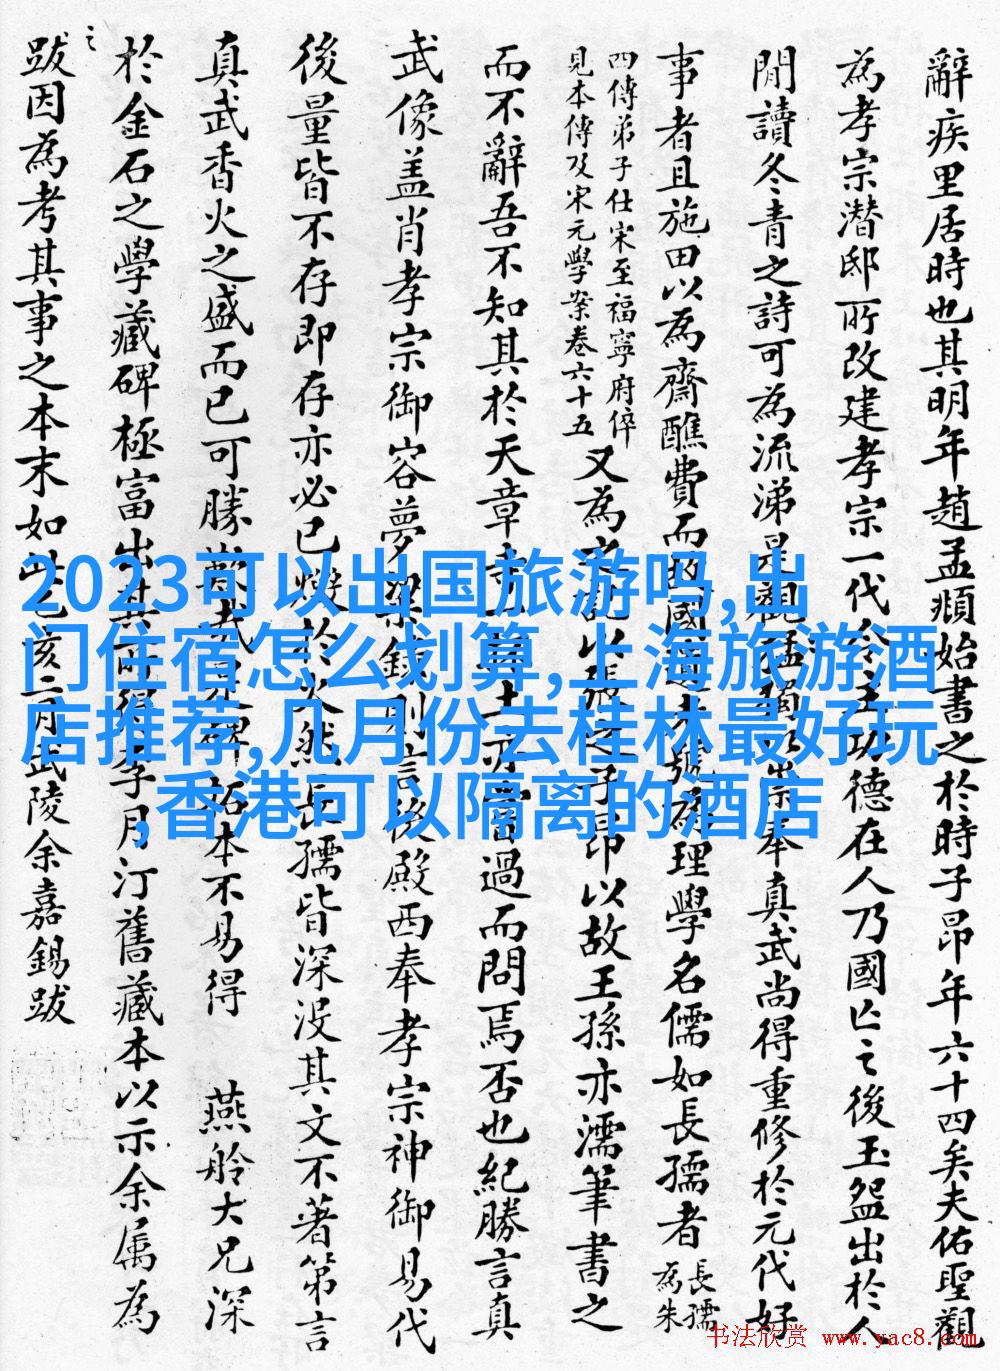 辭疾里居時也其明年趙孟頫始書之於時子昂年六十四矣夫佑聖觀
為孝宗潛邸所改建孝宗一代
功德在人乃國亡之後玉盌出於人
間讀冬青之詩可為流涕是觀
崇奉真武尚得重修於元代好
事者且施田以為齋醮費而
國
理學名儒如長孺者
長孺
為朱
四傳弟子仕宋至福寧府倅
見本傳及宋元學案卷六十五
又為
記以張
子昂以故王孫亦濡筆書之
而不辭吾不知其於天章
亦嘗過而問焉否也紀勝言真
武像盖肖孝宗御容夢
錄則言後殿西奉孝宗神御易代
後量皆不存即存亦必已燬於火然長孺皆深沒其文不著第言
真武香火之盛而已可勝歎
拓本不易得 燕舲大兄深
於金石之學藏碑極富出其所得李月汀舊藏本以示余属為
之
跋因為考其事之本末如此乙亥二月武陵余嘉錫跋
2023可以出国旅游吗,出
门住宿怎么划算,上海旅游酒
店推荐,几月份去桂林最好玩
,香港可以隔离的酒店
书法欣赏 www.yac8.com